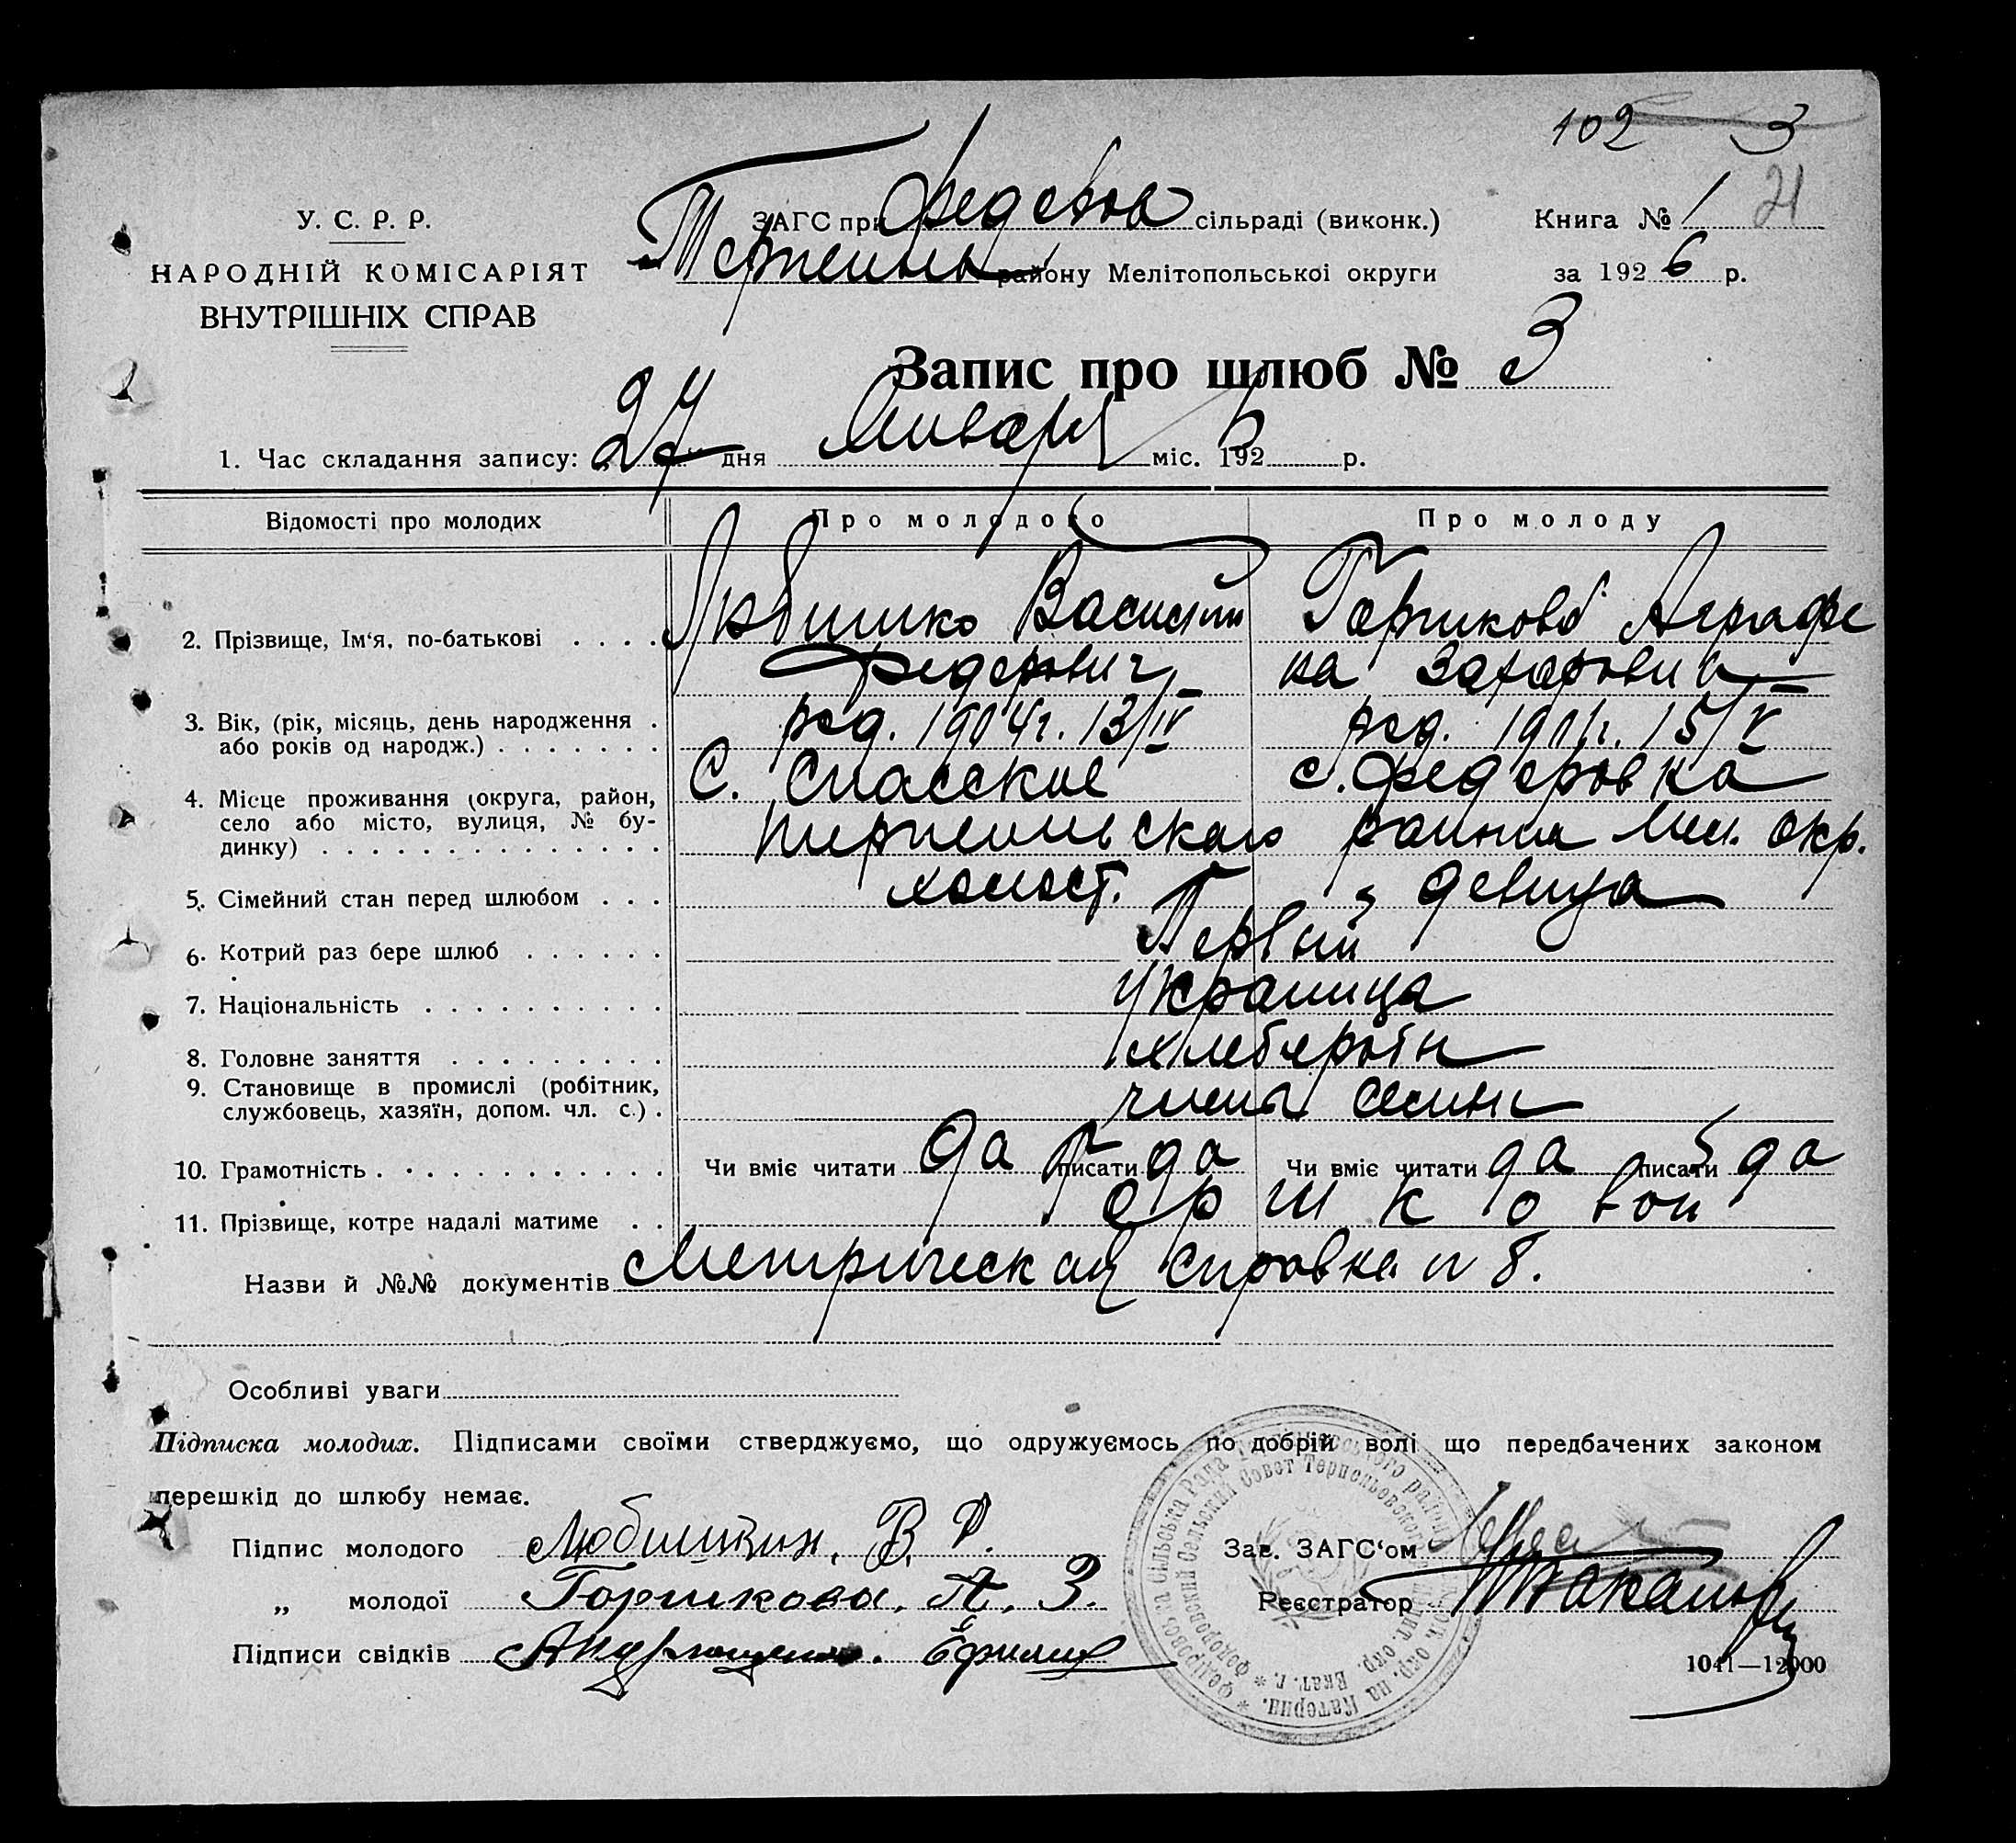 102 3
21
У. С. Р. Р.
НАРОДНІЙ КОМІСАРІЯТ
ВНУТРІШНІХ СПРАВ
ЗАГС при Федоров сільраді (виконк.)
району Мелітопольської округи
Книга № 1
за 1926 р.
Запис про шлюб № 3
1. Час складання запису: 27 дня Января міс. 1926 р.
Відомості про молодих Про молодого Про молоду
2. Прізвище, Ім'я, по-батькові . . . . Василий Горшкова Аграфе
Федорович на Захаровна
3. Вік, (рік, місяць, день народження . род. 1904 г. 13/IV род. 1901 г. 15/V
або років од народж.) . . . . . . .
4. Місце проживання (округа, район, С. Спасское с. Федоровка
село або місто, вулиця, № бу-
динку) . . . . . . . . . . . . . района Мел. окр.
5. Сімейний стан перед шлюбом . . . холост. девица
6. Котрий раз бере шлюб . . . . . . Первый
7. Національність . . . . . . . . . .
8. Головне заняття . . . . . . . . .
9. Становище в промислі (робітник,
службовець, хазяїн, допом. чл. с.) . члены семьи
10. Грамотність . . . . . . . . . . . Чи вміє читати да писати да Чи вміє читати да писати да
11. Прізвище, котре надалі матиме . . Горшковой
Назви й №№ документів Метрическая справка № 8.
Особливі уваги
Підписка молодих. Підписами своїми стверджуємо, що одружуємось по добрій волі що передбачених законом
перешкід до шлюбу немає.
Підпис молодого Любишкин. В. Ф.
„ молодої Горшкова. А. З.
Підписи свідків Андрющенко. Ефим
Зав. ЗАГС'ом
Реєстратор
1041—12000